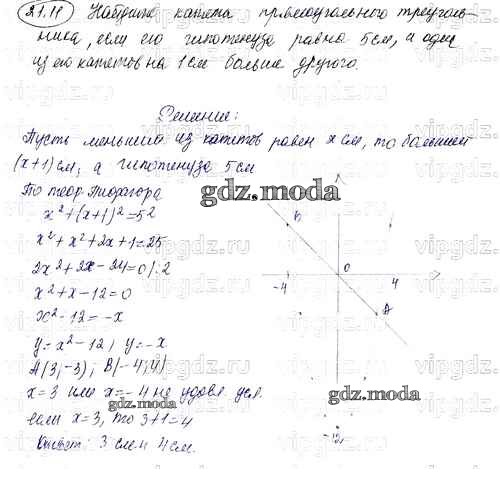 21.11 Найдите катеты прямоугольного треуголь-
ника, если его гипотенуза равна 5 см, а один
из его катетов на 1 см больше другого.
Решение:
Пусть меньший из катетов равен x см, то больший
(x+1) см, а гипотенуза 5 см
По теор Пифагора
x²+(x+1)²=5²
x²+x²+2x+1=25
2x²+2x-24=0/:2
x²+x-12=0
x²-12=-x
y=x²-12; y=-x
A(3;-3); B(-4;4)
x=3 или x=-4 не удовл. усл.
если x=3, то 3+1=4
Ответ: 3 см и 4 см.
B
0
-4
4
A
-12
gdz.moda
gdz.moda
gdz.moda
vipgdz.ru